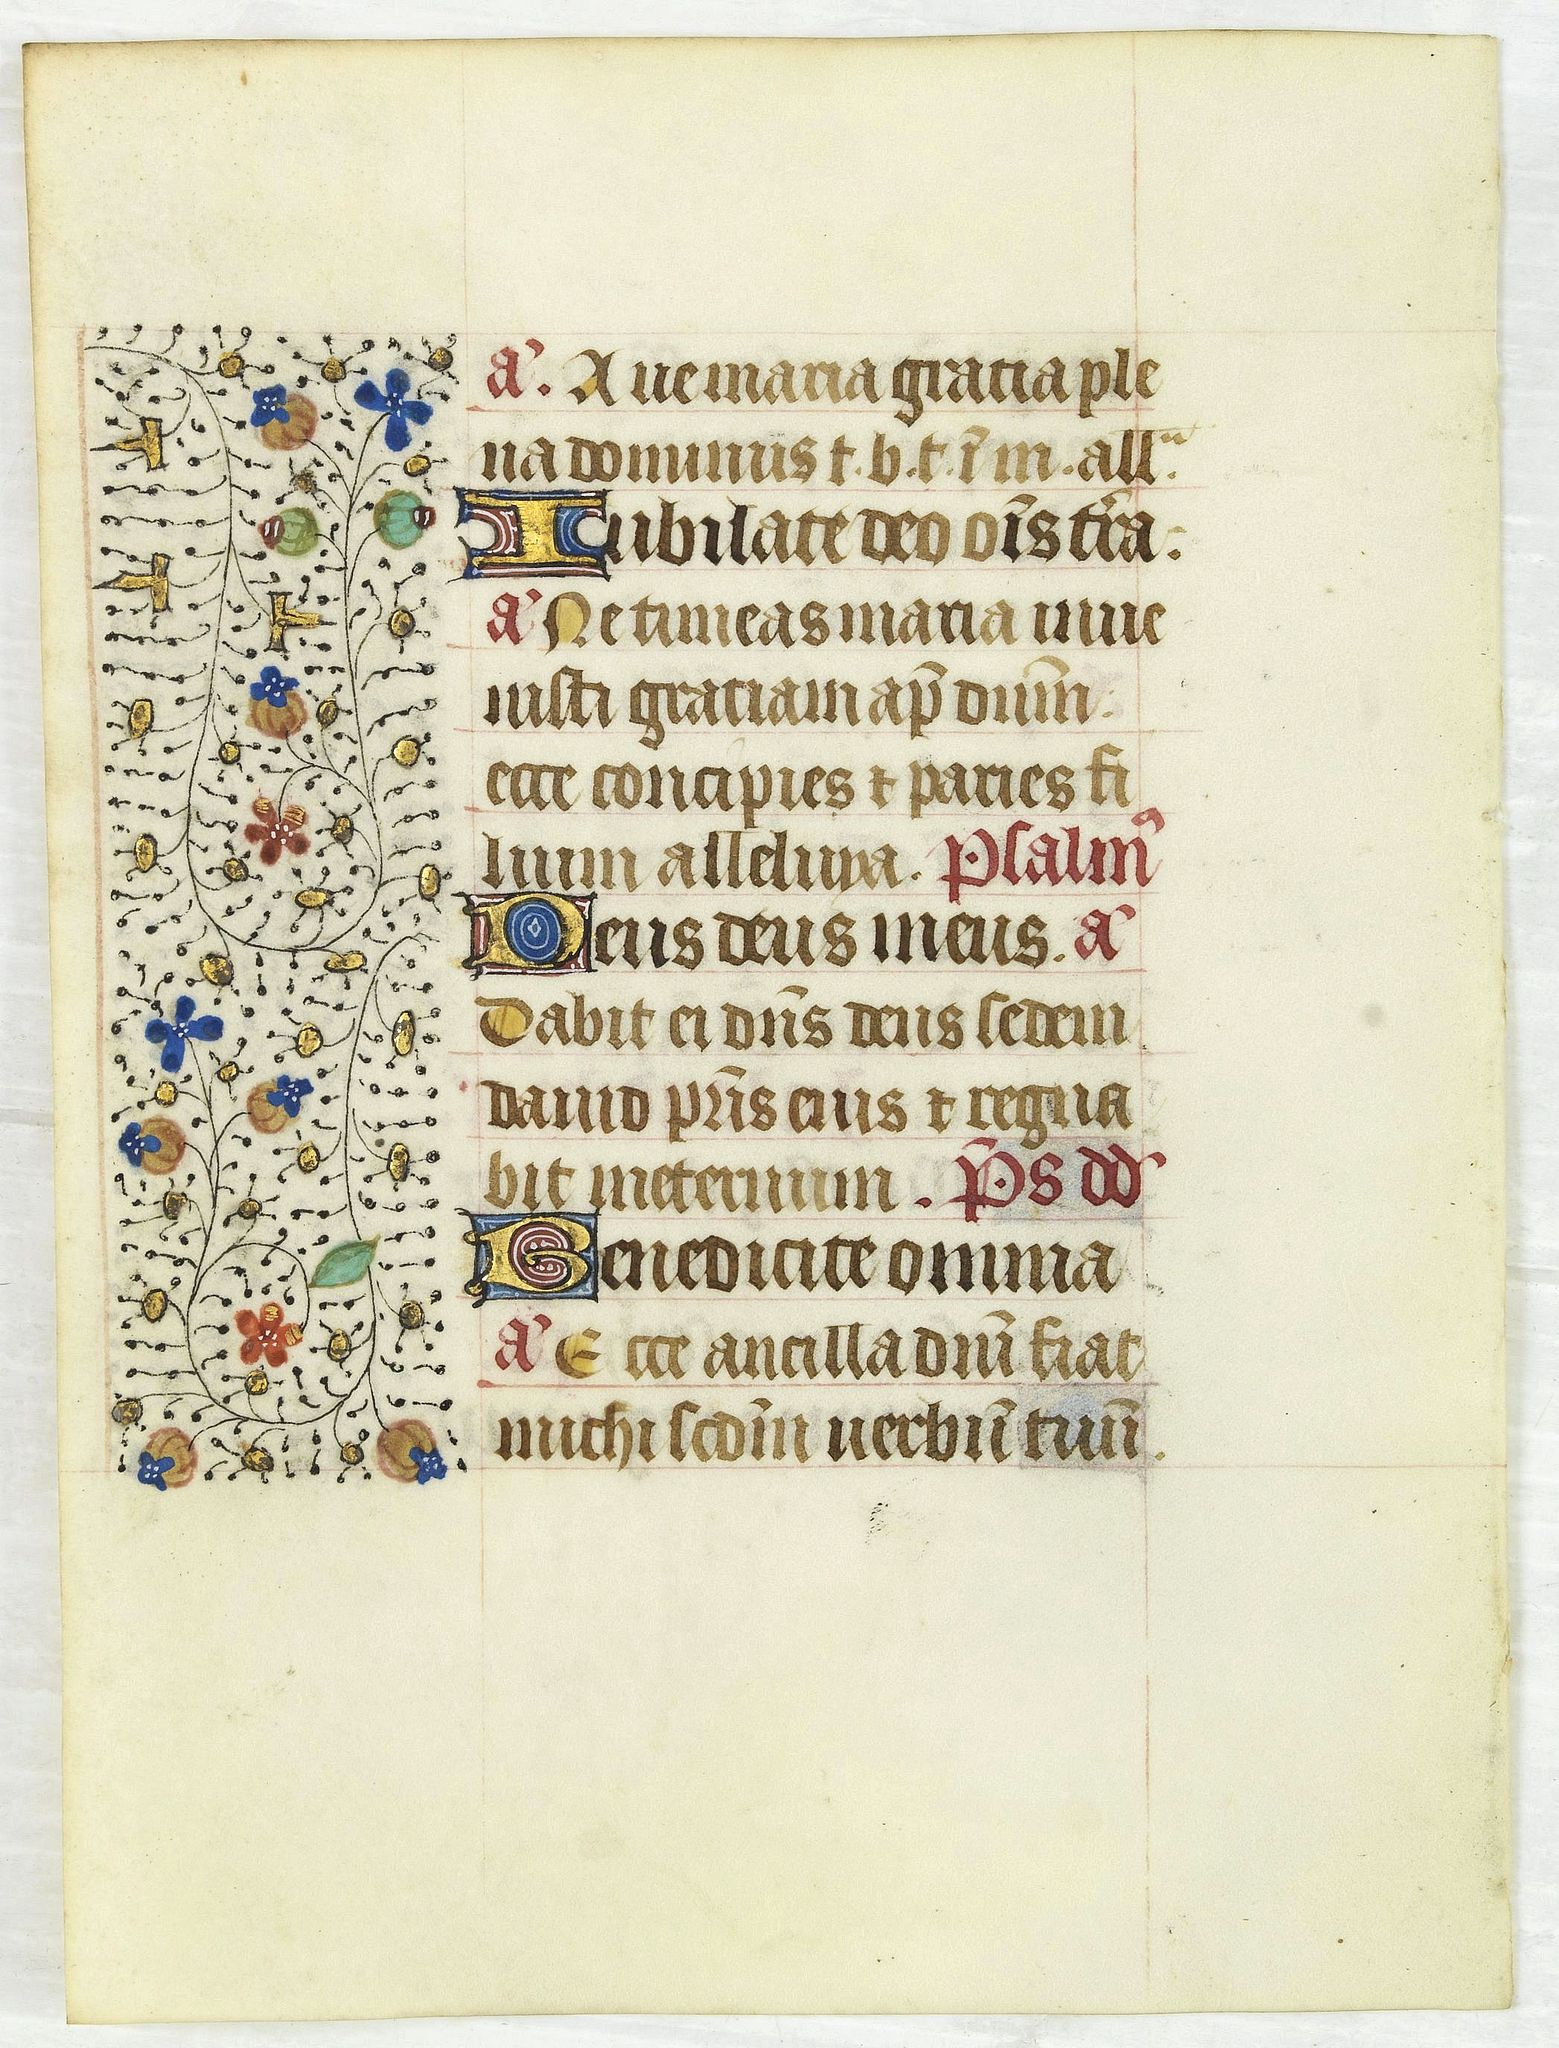 a᷒. Aue maria gratia ple
na dominus t. b. t. ī m. all᷒.
Iubilate deo oīs t̄ra:
a᷒ Ne timeas maria inue
nisti gratiam ap̄ dnm̄.
ecce concipies ⁊ paries fi
lium alleluya. Psalm᷒
Deus deus meus. a᷒
Dabit ei dn̄s deus sedem
dauid pr̄is eius ⁊ regna
bit ineternum. P̄s dd᷒
Benedicite omnia
a᷒ Ecce ancilla dn̄i fiat
michi scd̄m uerbū tuū.